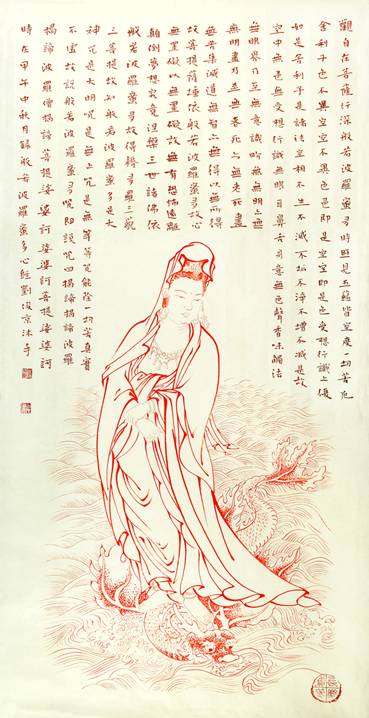 觀自在菩薩行深般若波羅蜜多時照見五蘊皆空度一切苦厄
舍利子色不異空空不異色色即是空空即是色受想行識亦復
如是舍利子是諸法空相不生不滅不垢不淨不增不減是故
空中無色無受想行識無眼耳鼻舌身意無色聲香味觸法
無眼界乃至無意識界無無明亦無
無明盡乃至無老死亦無老死盡
無苦集滅道無智亦無得以無所得
故菩提薩埵依般若波羅蜜多故心
無罣礙以無罣礙故無有恐怖遠離
顛倒夢想究竟涅槃三世諸佛依
般若波羅蜜多故得阿耨多羅三藐
三菩提故知般若波羅蜜多是大
神咒是大明咒是無上咒是無等等咒能除一切苦真實
不虛故說般若波羅蜜多咒即說咒曰揭諦揭諦波羅
揭諦波羅僧揭諦菩提娑婆訶娑婆訶菩提娑婆訶
時在甲午中秋月錄般若波羅蜜多心經劉俊京沐手